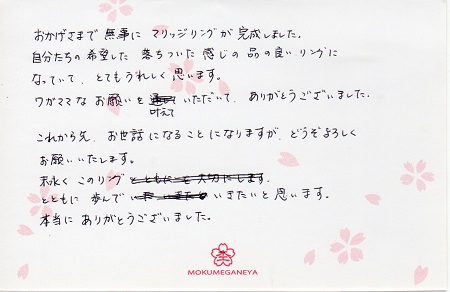 おかげさまで 無事に マリッジリングが 完成しました。
自分たちの希望した 落ちついた 感じの 品の良い リングに
なっていて、とてもうれしく 思います。
ワガママな お願いを いただいて、ありがとうございました。
叶えて
これから先、お世話になることになりますが、どうぞよろしく
お願いいたします。
末永く このリング
とともに 歩んで いきたいと思います。
本当に ありがとうございました。
MOKUMEGANEYA